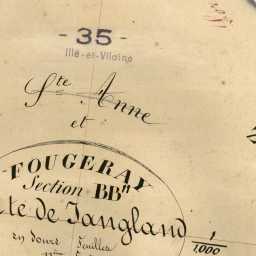 - 35 -
Ille-et-Vilaine
Ste Anne
et
FOUGERAY
Section BBII
te de Tangland
en Jours Feuilles
1
1,000